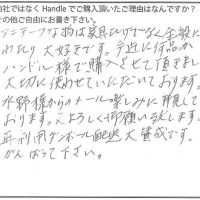 社ではなく Handle でご購入頂いたご理由はなんですか？
の他ご自由にお書き下さい。
アンテークな物は家具だけでなく全般に
わたり大好きです。今迄に何品か
ハンドル様で購入させて頂きまし
大切に使わせていただいております。
水野様からのメールも楽しみに拝見して
おります。よろしく御願い致します。
再利用ダンボール配送大賛成です。
がんばって下さい。